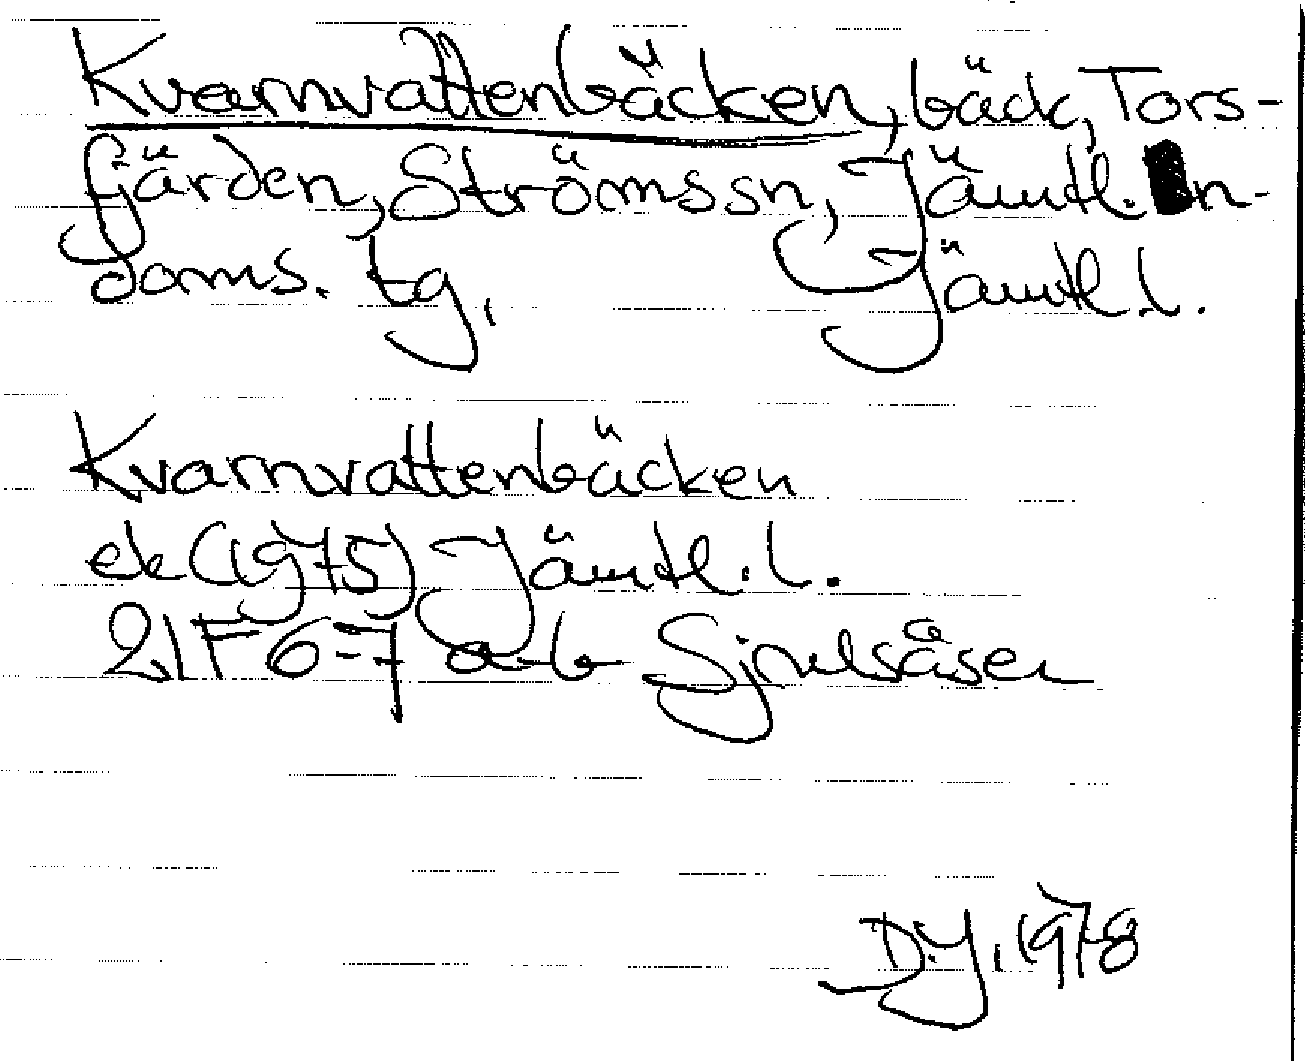 Kvarnvattenbäcken, bäck, Tors-
fjärden, Ströms sn, Jämtl. n-
doms. tg, Jämtl. l.
Kvarnvattenbäcken
ek (1975) Jämtl. l.
21F 6-7 a-b Sjoulsåsen
D.J. 1978